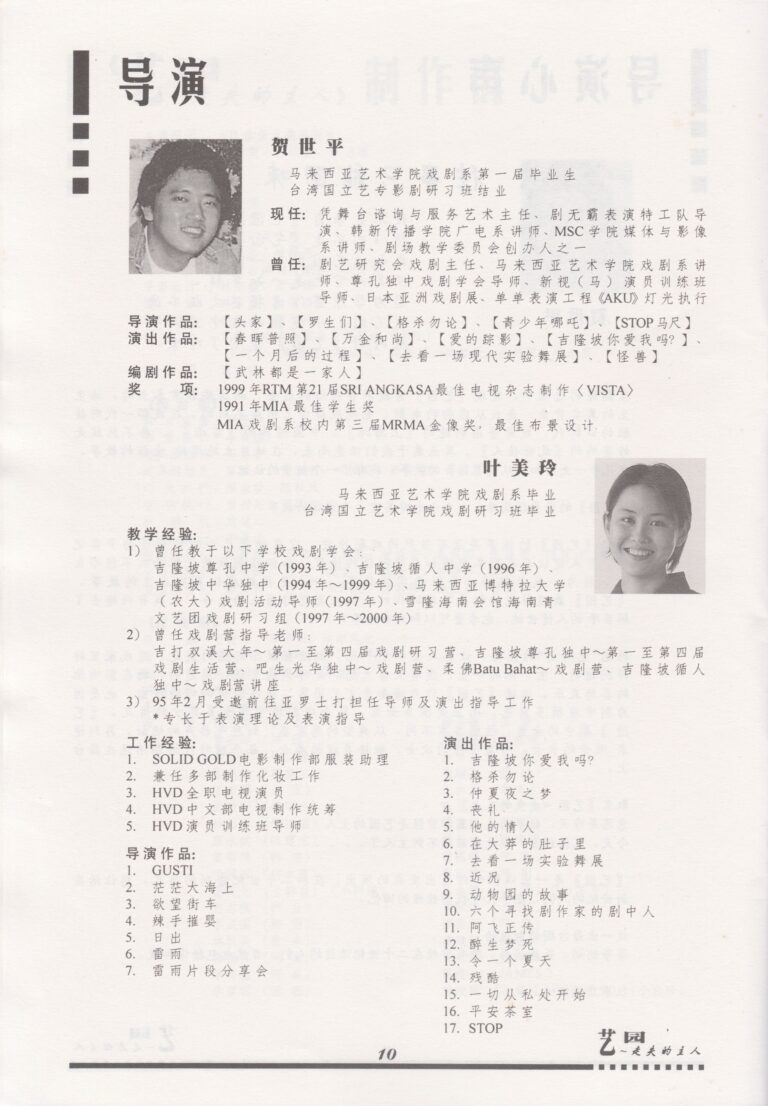 导演
贺世平
马来西亚艺术学院戏剧系第一届毕业生
台湾国立艺专影剧研习班结业
现任: 凭舞台谘询与服务艺术主任、剧无霸表演特工队导
演、韩新传播学院广电系讲师、MSC学院媒体与影像
系讲师、剧场教学委员会创办人之一
曾任: 剧艺研究会戏剧主任、马来西亚艺术学院戏剧系讲
师、尊孔独中戏剧学会导师、新视（马）演员训练班
导师、日本亚洲戏剧展、单单表演工程《AKU》灯光执行
导演作品: 【头家】、【罗生们】、【格杀勿论】、【青少年哪吒】、【STOP马尺】
演出作品: 【春晖普照】、【万金和尚】、【爱的踪影】、【吉隆坡你爱我吗？】、
【一个月后的过程】、【去看一场现代实验舞展】、【怪兽】
编剧作品: 【武林都是一家人】
奖 项: 1999年RTM第21届SRI ANGKASA最佳电视杂志制作〈VISTA〉
1991年MIA最佳学生奖
MIA戏剧系校内第三届MRMA金像奖，最佳布景设计
叶美玲
马来西亚艺术学院戏剧系毕业
台湾国立艺术学院戏剧研习班毕业
教学经验:
1) 曾任教于以下学校戏剧学会:
吉隆坡尊孔中学(1993年)、吉隆坡循人中学(1996年)、
吉隆坡中华独中(1994年～1999年)、马来西亚博特拉大学
（农大）戏剧活动导师(1997年)、雪隆海南会馆海南青
文艺团戏剧研习组(1997年～2000年)
2) 曾任戏剧营指导老师:
吉打双溪大年～第一至第四届戏剧研习营、吉隆坡尊孔独中～第一至第四届
戏剧生活营、吧生光华独中～戏剧营、柔佛Batu Bahat～戏剧营、吉隆坡循人
独中～戏剧营讲座
3) 95年2月受邀前往亚罗士打担任导师及演出指导工作
*专长于表演理论及表演指导
工作经验:
1. SOLID GOLD电影制作部服装助理
2. 兼任多部制作化妆工作
3. HVD全职电视演员
4. HVD中文部电视制作统筹
5. HVD演员训练班导师
导演作品:
1. GUSTI
2. 茫茫大海上
3. 欲望街车
4. 辣手摧婴
5. 日出
6. 雷雨
7. 雷雨片段分享会
演出作品:
1. 吉隆坡你爱我吗?
2. 格杀勿论
3. 仲夏夜之梦
4. 丧礼
5. 他的情人
6. 在大莽的肚子里
7. 去看一场实验舞展
8. 近况
9. 动物园的故事
10. 六个寻找剧作家的剧中人
11. 阿飞正传
12. 醉生梦死
13. 令一个夏天
14. 残酷
15. 一切从私处开始
16. 平安茶室
17. STOP
10
艺园
～走失的主人